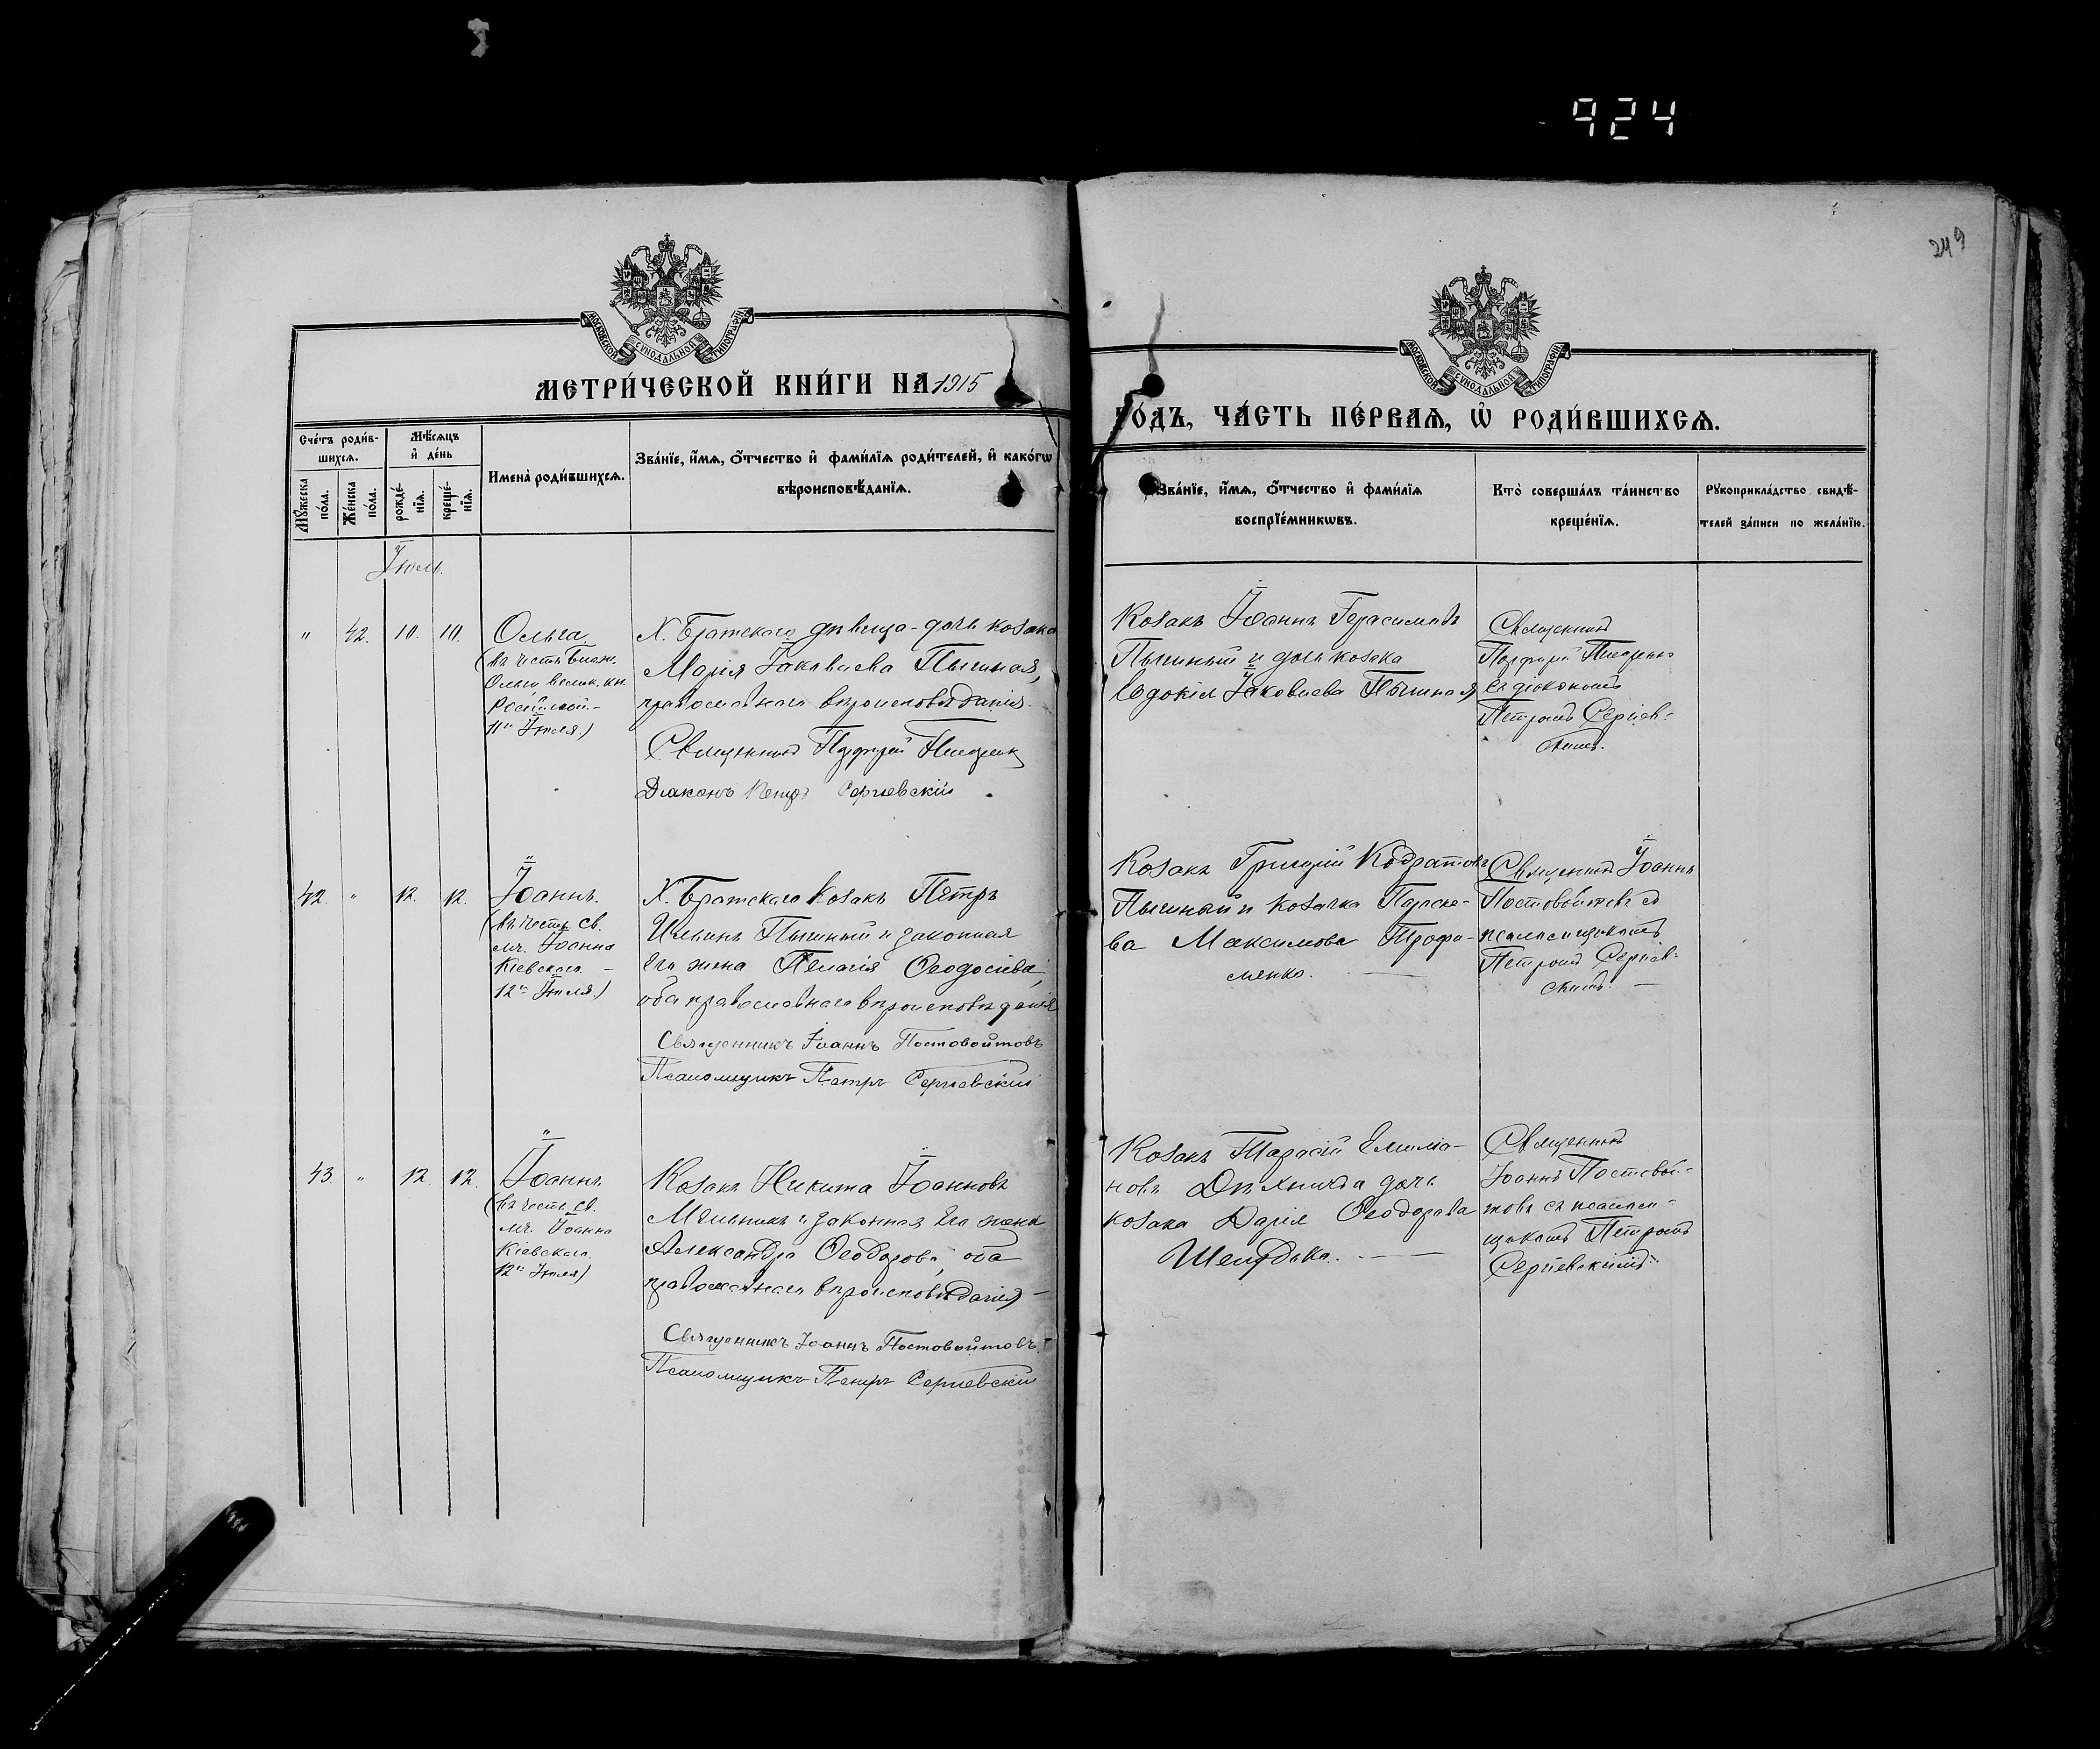 924
249
МОСКОВСКОЙ СѴНОДАЛЬНОЙ ТИПОГРАФІИ
МЕТРИ́ЧЕСКОЙ КНИ́ГИ НА 1915
МОСКОВСКОЙ СѴНОДАЛЬНОЙ ТИПОГРАФІИ
ГО́ДЪ, ЧА́СТЬ ПЕ́РВАѦ, Ѡ҆ РОДИ́ВШИХСѦ.
Сче́тъ роди́в-
шихсѧ.
Мꙋ́жеска
по́ла.
Же́нска
по́ла.
Мѣ́сѧцъ
и҆ де́нь
рожде́-
нїѧ.
креще́-
нїѧ.
Имена̀ роди́вшихсѧ.
Зва́нїе, и҆́мѧ, ѻ҆́тчество и҆ фами́лїѧ роди́телей, и҆ како́гѡ
вѣроисповѣ́данїѧ.
Зва́нїе, и҆́мѧ, ѻ҆́тчество и҆ фами́лїѧ
воспрїе́мникѡвъ.
Кто̀ соверша́лъ та́инство
креще́нїѧ.
Рꙋкоприкла́дство свидѣ́-
телей за́писи по жела́нїю.
Іюль.
" 42. 10. 10.
Ольга.
(въ честь Благ.
Ольги велик. кн.
Россійской.-
11го Іюля)
Х. Братскаго дѣвица - дочь козака
Марія Іаковлева Пычиная,
православнаго вѣроисповѣданія.
Священникъ Порфирій
Діаконъ Петръ Сергіевскій
Козакъ Іоаннъ Герасимовъ
Пычиный и дочь козака
Евдокія Іаковлева Пычиная
Священникъ
Порфирій
съ діакономъ
Петромъ Сергіев-
скимъ.
42. " 12. 12.
Іоаннъ.
(въ честь св.
мч. Іоанна
Кіевскаго. -
12го Іюля.)
Х. Братскаго козакъ Петръ
Ильинъ Пычиный и законная
его жена Пелагія Ѳеодосіева,
оба православнаго вѣроисповѣданія
Священникъ Іоаннъ Постовойтовъ
Псаломщикъ Петръ Сергіевскій
Козакъ Григорій Кодратовъ
Пычиный и козачка Параске-
ва Максимова Трофи-
менко.
Священникъ Іоаннъ
Постовойтовъ съ
псаломщикомъ
Петромъ Сергіев-
скимъ. -
43. " 12. 12.
Іоаннъ
(въ честь св.
мч. Іоанна
Кіевскаго.
12го Іюля)
Козакъ Никита Іоанновъ
Мельникъ и законная его жена
Александра Ѳеодорова, оба
православнаго вѣроисповѣданія -
Священникъ Іоаннъ Постовойтовъ
Псаломщикъ Петръ Сергіевскій
Козакъ Тарасій Емилїа-
новъ и дочь
козака Дарія Ѳеодорова
Священникъ
Іоаннъ Постовой-
товъ съ псалом-
щикомъ Петромъ
Сергіевскимъ.